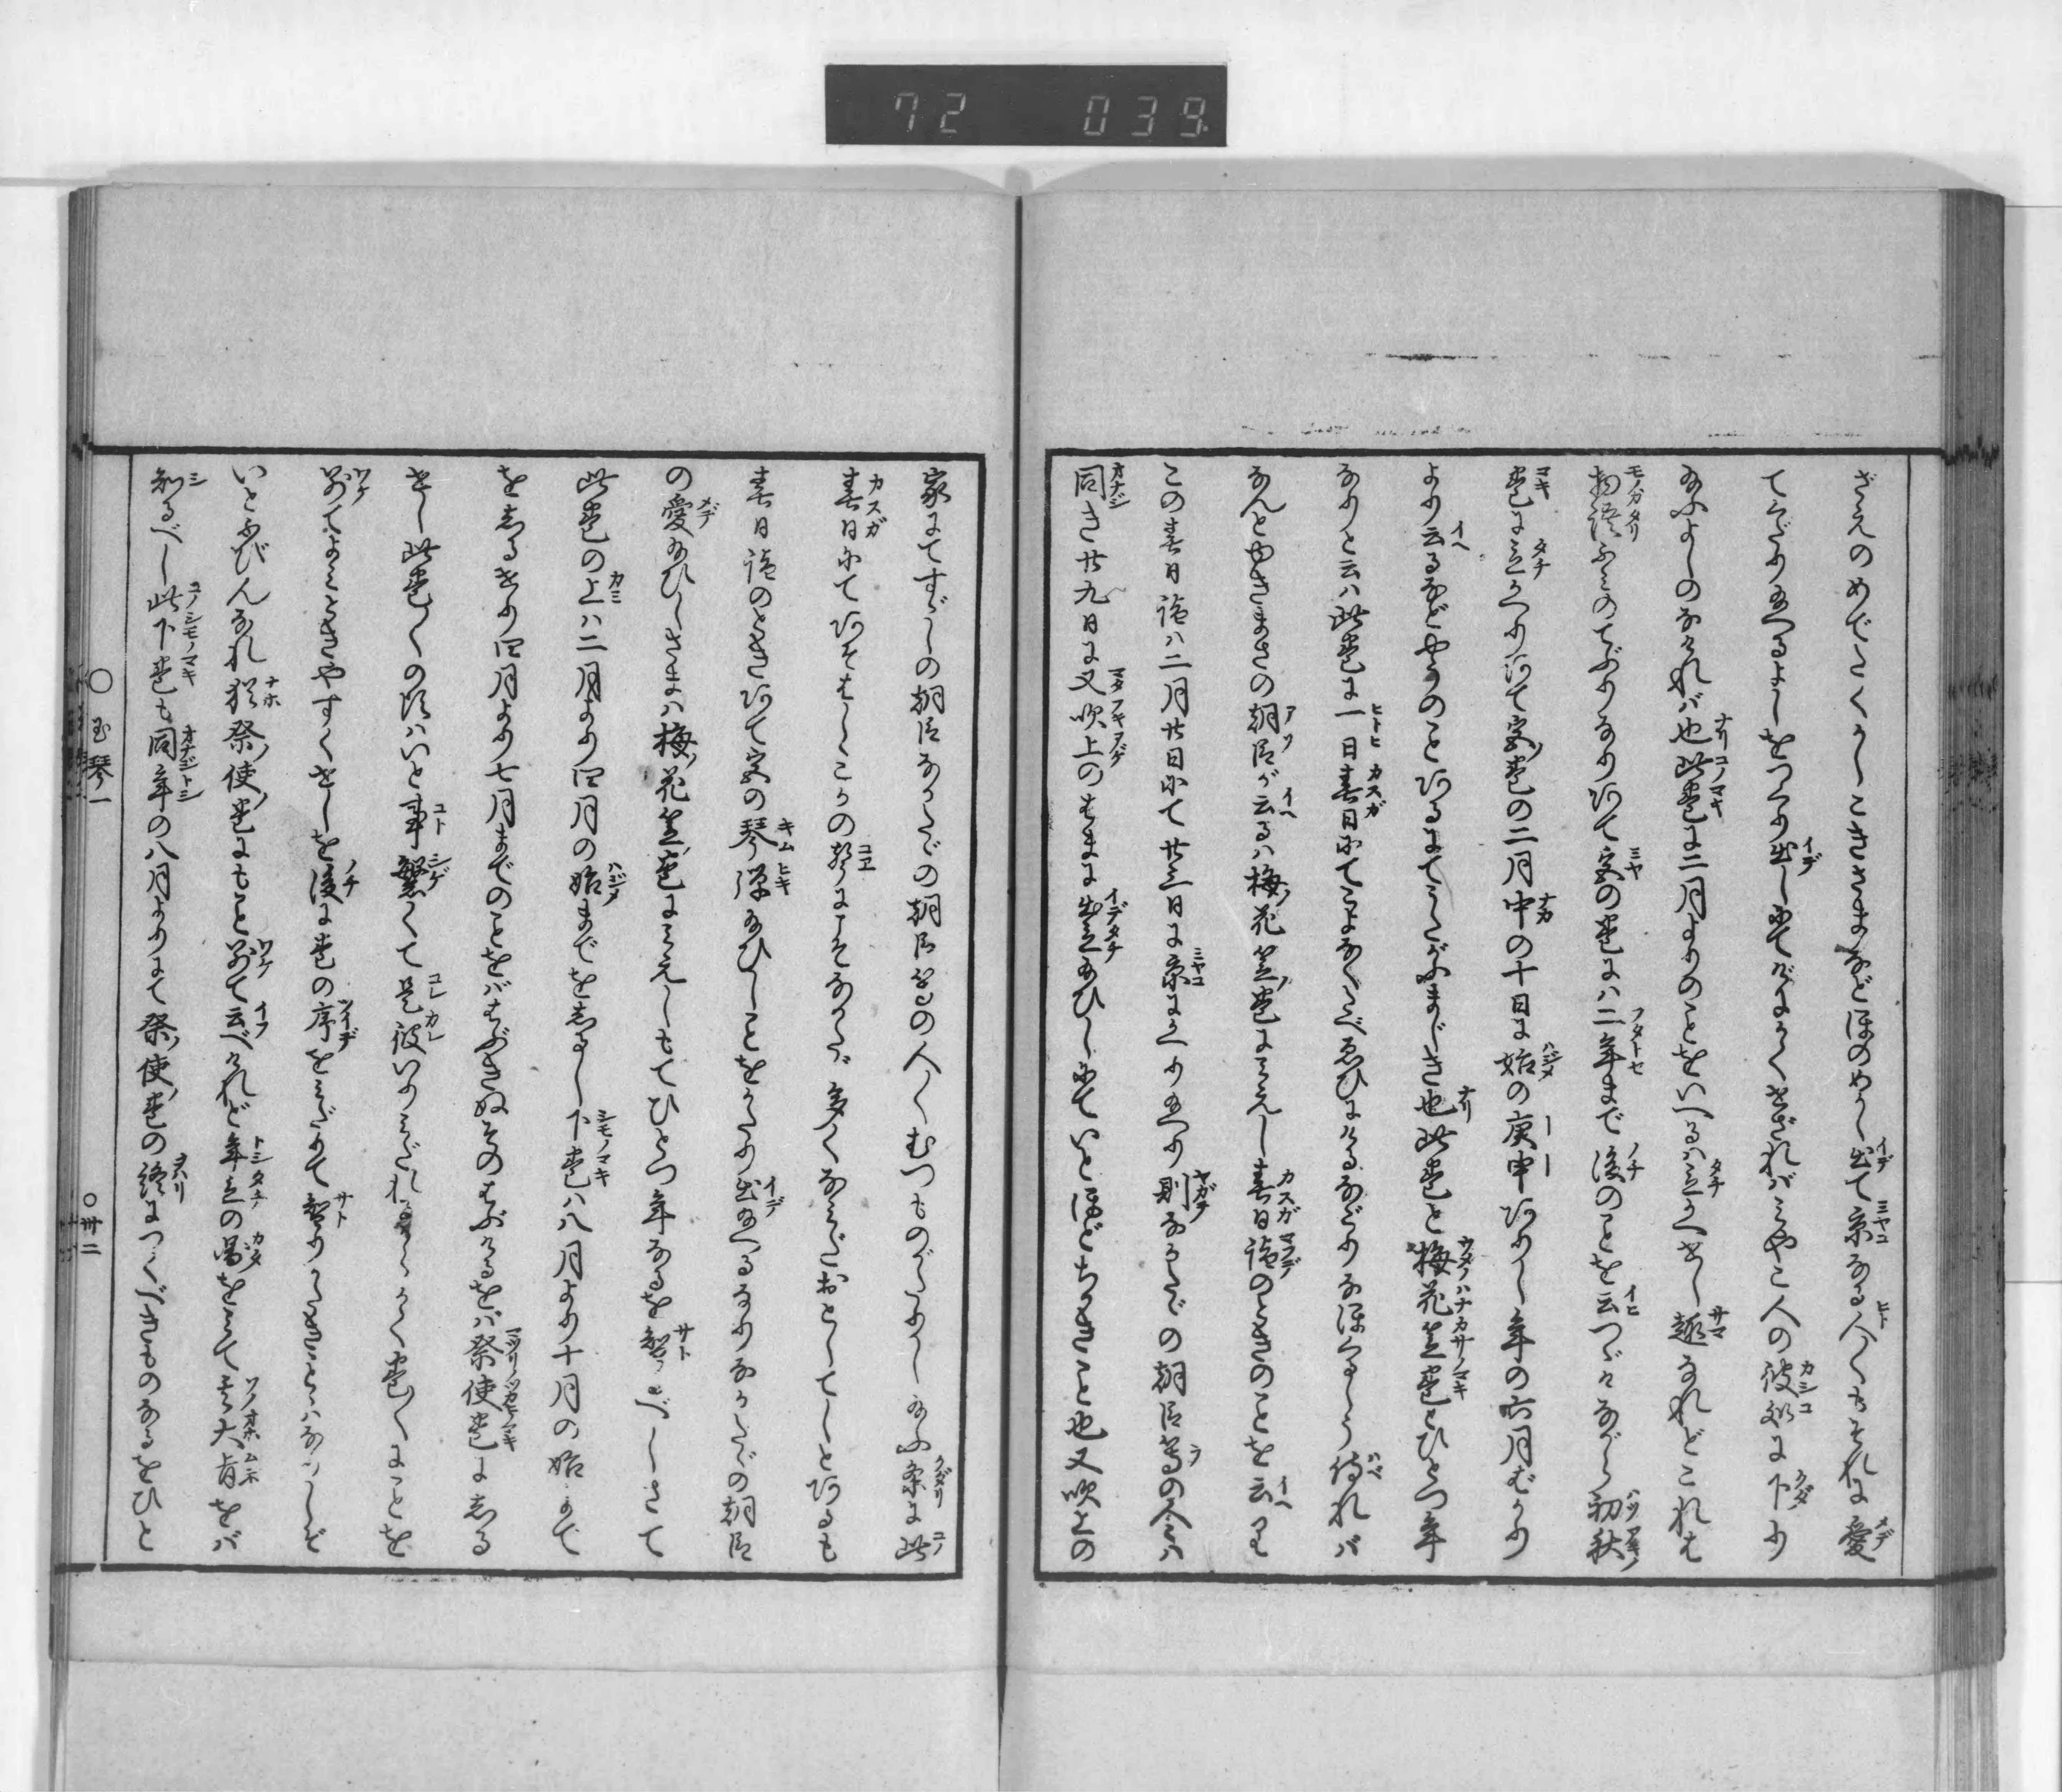 72 039
ざえのめでたくかしこきさまなどほのめかし出て京なる人〻もそれに愛
てくだり給へるよしをつくり出し出てにかくせざれバみやこ人の彼処に下り
給ふよしのなけれバ也此巻に二月よりのことをいへるハ立かへせし趣なれどこれも
物語ふみのてぶりなり同て家の巻にハ二年まで後のことを云つゞけながら初秋
巻に立かへり同て家巻の二月中の十日に始の庚申ありし年の六月ばかり
より云るなどやうのことあるにてうたがふまじき也此巻と梅花笠巻とひとつ年
なりと云ハ此巻に一日春日にてこよなくたべゑひにけるなごりなほくるしう侍れバ
なんとやきまさの朝臣が云るハ梅花笠巻にみえし春日詣のときのことを云へり
この春日詣ハ二月廿日にて廿三日に京にかへり給へり則なかたゞの朝臣等の人〻ハ
同き廿九日に又吹上のはまに出立給ひしにていとほどちかきこと也又吹上の
家にてすゞしの朝臣なかたゞの朝臣などの人〻むつものがたりし給ふ条に此
春日にてあそはしゝこゑの声にこそなかたゞ多くなみだおとしてしとあるも
春日詣のときあて宮の琴弾給ひしことをかたり出給へるなりなかたゞの朝臣
の愛給ひしさまハ梅花笠巻にみえしもてひとつ年なるを智るべしさて
此巻の上ハ二月より四月の始までを志るし下巻ハ八月より十月の始まで
を志るせり四月より七月までのことをバはぶきぬそのはぶけるをバ祭使巻に志る
せし此巻〻の頃ハいと事繁くて是彼いりみだれぬべくかく巻〻にことを
別てよみときやすくせしを後に巻の序をみだりて智りがたきことハなりしぞ
いとふびんなれ猶祭使巻にもこと別て云べけれど年立の図をみて其大旨をバ
知るべし此下巻も同年の八月よりにて祭使巻の終につくべきものなるをひと
〇玉琴一
〇卅二